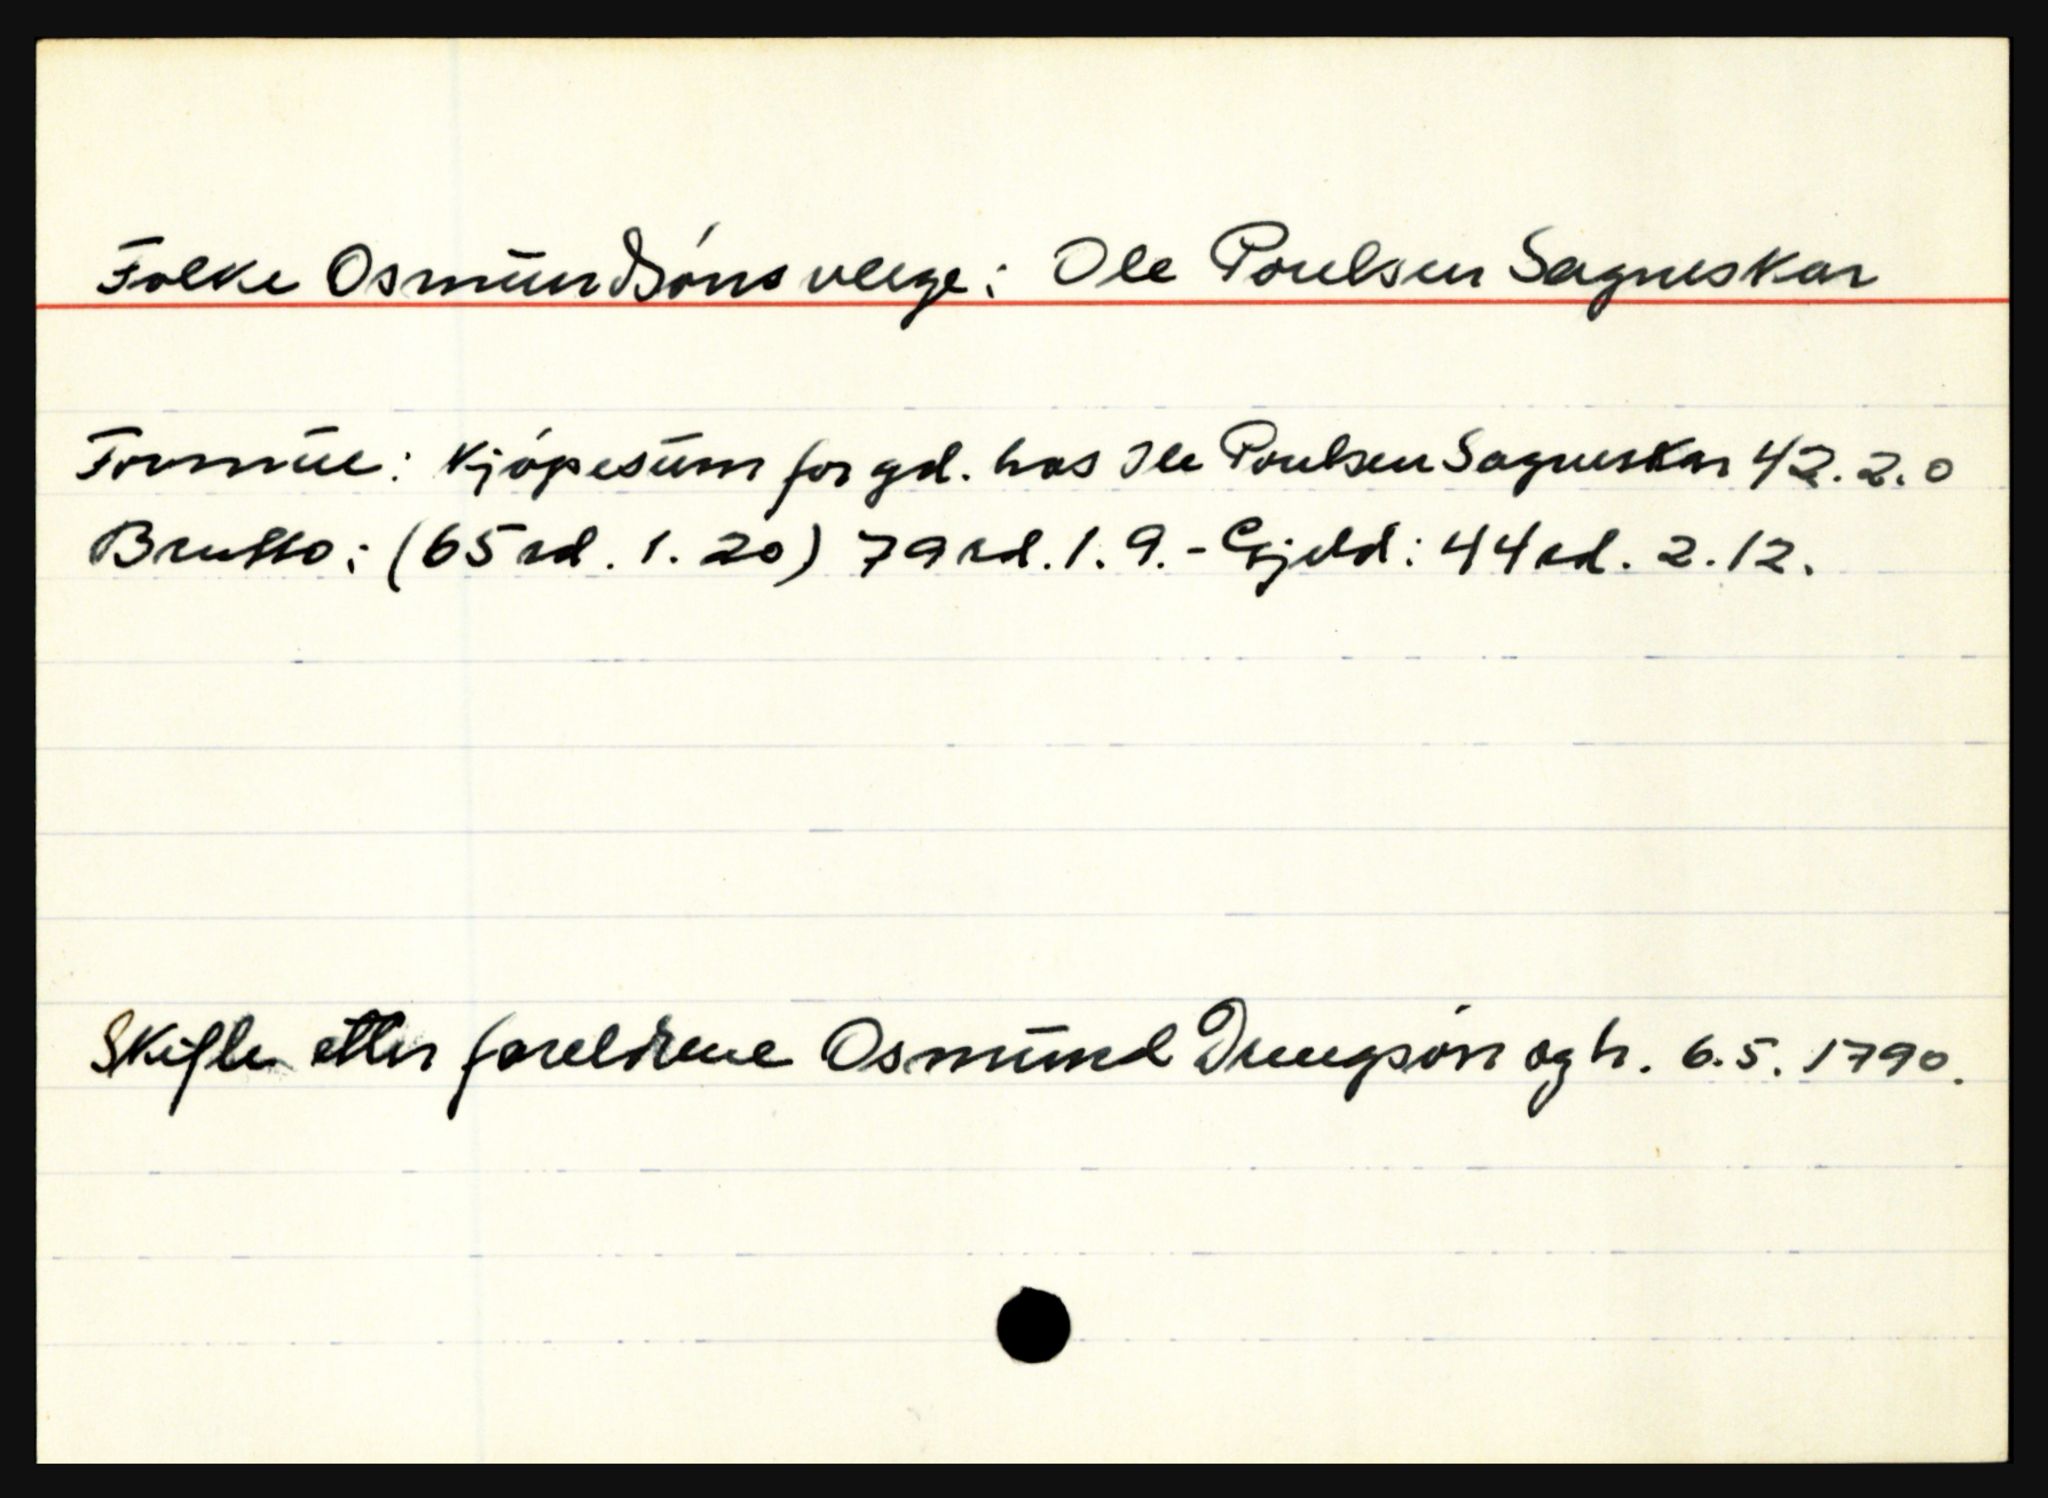 Folke Osmundsóns verge: Ole Poulsen Sagneskar
Formue: Kjópesum for gd. hos Ole Poulsen Sagneskar 42.2.0
Brutto: (65 rd. 1. 20) 79 rd. 1. 9. - Gjeld: 44 rd. 2. 12.
Skifte etter foreldrene Osmund Drengsón og h. 6.5. 1790.